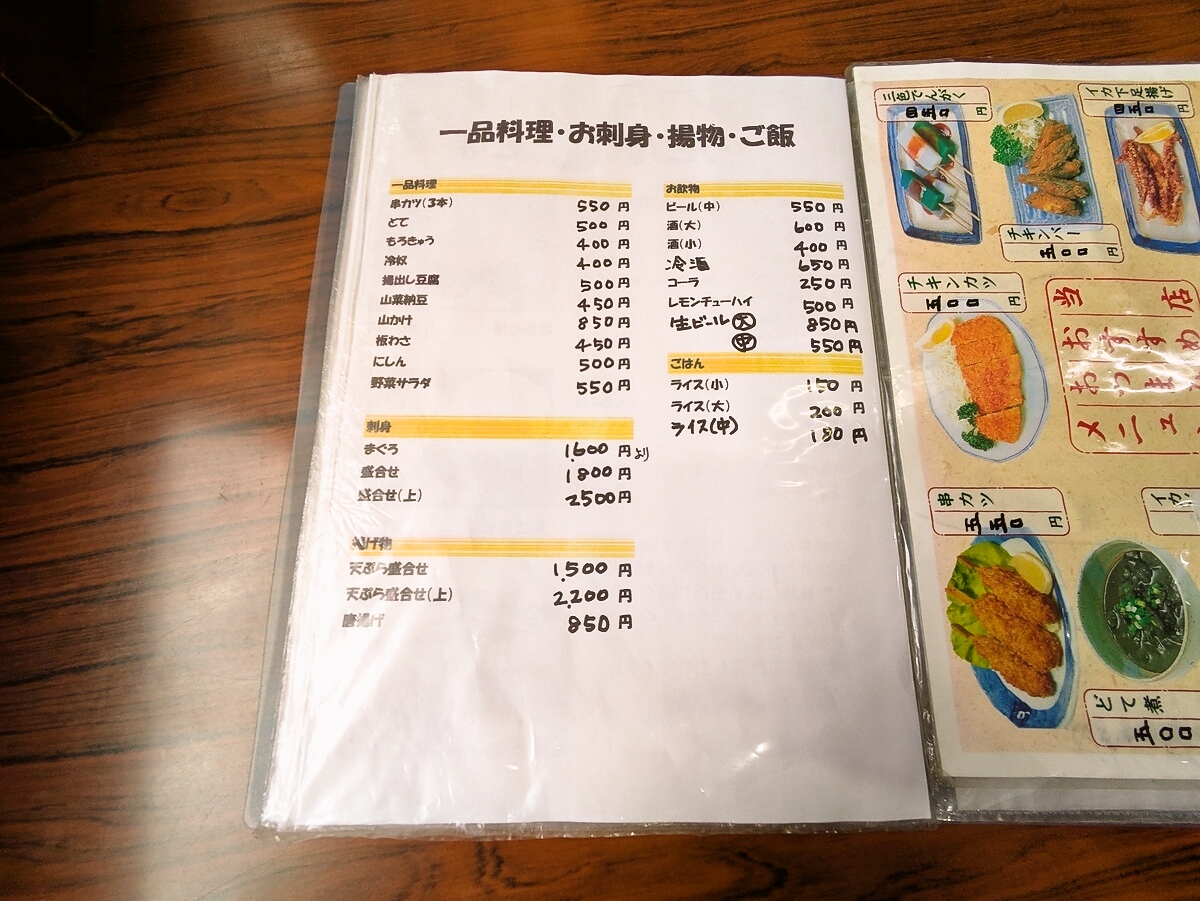 一品料理・お刺身・揚物・ご飯
一品料理
串カツ(3本) 550円
どて 500円
もろきゅう 400円
冷奴 400円
揚出し豆腐 500円
山菜納豆 450円
山かけ 850円
板わさ 450円
にしん 500円
野菜サラダ 550円
刺身
まぐろ 1,600円より
盛合せ 1800円
盛合せ(上) 2500円
揚げ物
天ぷら盛合せ 1,500円
天ぷら盛合せ(上) 2,200円
唐揚げ 850円
お飲物
ビール(中) 550円
酒(大) 600円
酒(小) 400円
冷酒 650円
コーラ 250円
レモンチューハイ 500円
生ビール大 850円
中 550円
ごはん
ライス(小) 150円
ライス(大) 200円
ライス(中) 180円
三色でんがく
四五〇円
イカ下足揚げ
四五〇円
チキンバー
五〇〇円
チキンカツ
五〇〇円
当店
おすすめ
おつま
メニュー
串カツ
五五〇円
イカ
どて煮
五〇〇